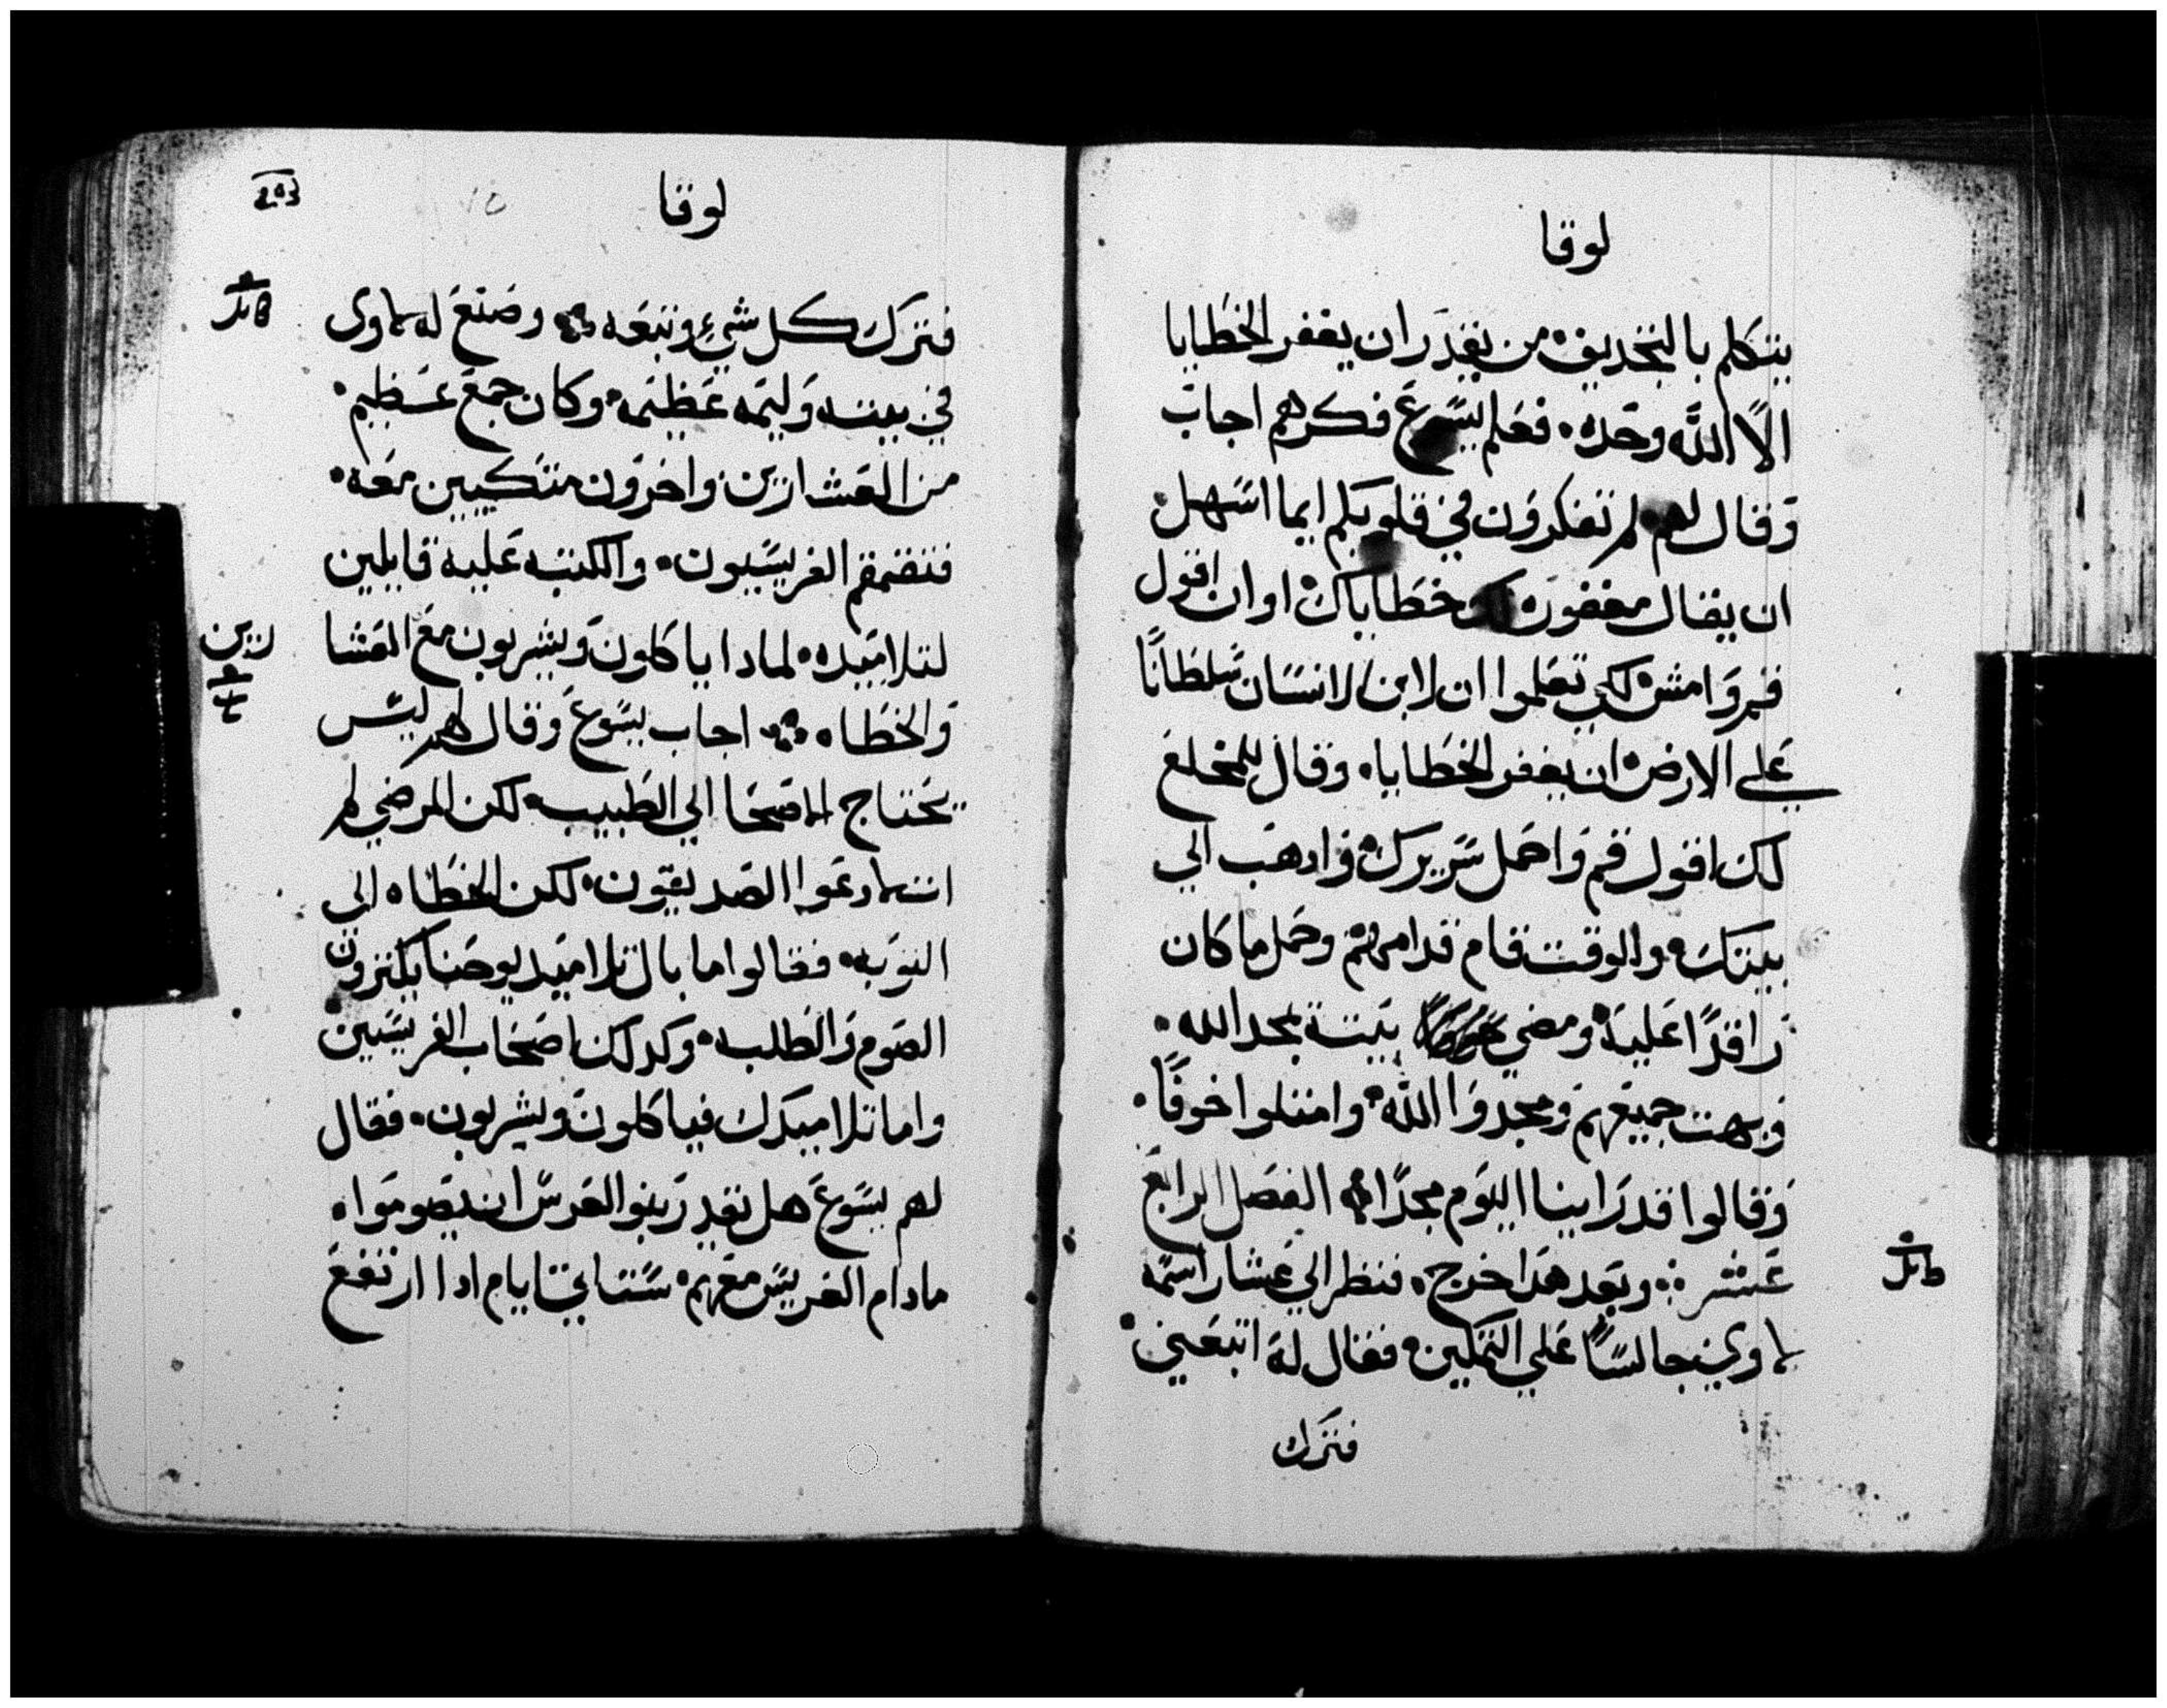 لوقا
يتكلم بالتجديف من يقدر ان يغفر الخطايا
الا الله وحده فعلم يسوع فكرهم اجاب
وقال لهم لم تفكرون في قلوبكم ايما اسهل
ان يقال مغفوره لك خطاياك او ان اقول
قم وامش لكي تعلموا ان لابن الانسان سلطانا
علي الارض ان يغفر الخطايا وقال للمخلع
لك اقول قم واحمل سريرك وادهب الي
بيتك والوقت قام قدامهم وحمل ما كان
راقدا عليه ومضي بيته يمجد الله
وبهت جميعهم ومجدوا الله وامتلوا خوفا
وقالوا قد راينا اليوم مجدا الفصل الرابع
عشر وبعد هدا خرج فنظر الي عشار اسمه
لاوي جالسا علي التمكين فقال له اتبعني
فترك
لوقا
فترك كل شيء وتبعه وصنع له لاوى
في بيته وليمه عظيمه وكان جمع عظيم
من العشارين واخرون متكيين معه
فتقمقم الفريسيون والكتبه عليه قايلين
لتلاميده لمادا ياكلون ويشربون مع العشا
رين
والخطاه اجاب يسوع وقال لهم ليس
يحتاج الاصحا الي الطبيب لكن المرضي لم
ات لادعوا الصديقون لكن الخطاه الي
التوبه فقالوا ما بال تلاميد يوحنا يكترون
الصوم والطلبه وكدلك اصحاب الفريسيين
واما تلاميدك فياكلون ويشربون فقال
لهم يسوع هل تقدر بنو العرس ان يصوموا
مادام العريس معهم ستاتي ايام ادا ارتفع